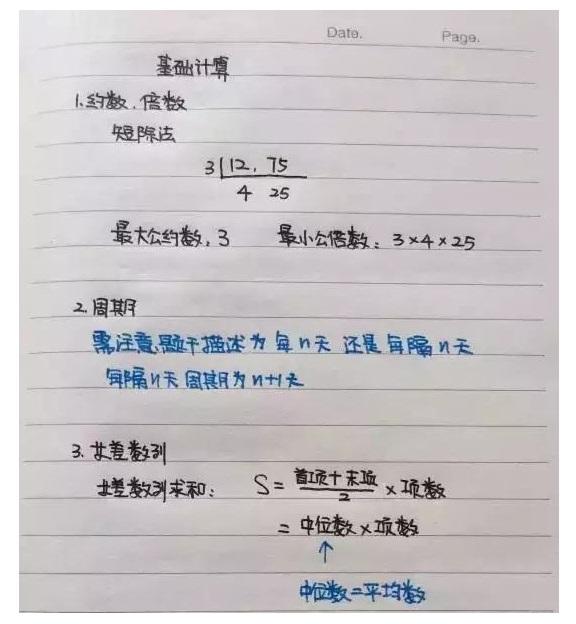 Date. Page.
基础计算
1.约数.倍数
短除法
3|12, 75
4 25
最大公约数,3 最小公倍数:3×4×25
2.周期
需注意题干描述为每n天 还是每隔n天
每隔n天周期为n+1天
3.等差数列
等差数列求和: S=首项+末项/2×项数
=中位数×项数
↑
中位数=平均数